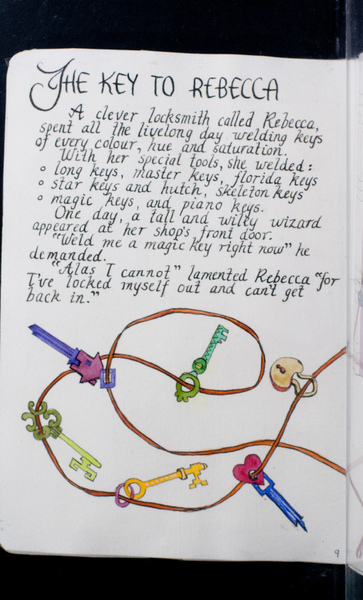 THE KEY TO REBECCA
A clever locksmith called Rebecca,
spent all the livelong day welding keys
of every colour, hue and saturation.
With her special tools, she welded:
° long keys, master keys, florida keys
° star keys and hutch, skeleton keys
° magic keys, and piano keys.
One day, a tall and wilty wizard
appeared at her shop's front door.
"Weld me a magic key right now" he
demanded.
"Alas I cannot" lamented Rebecca "for
I've locked myself out and can't get
back in."
9